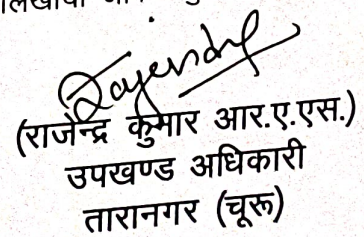 Rajendr
(राजेन्द्र कुमार आर.ए.एस.)
उपखण्ड अधिकारी
तारानगर (चूरू)